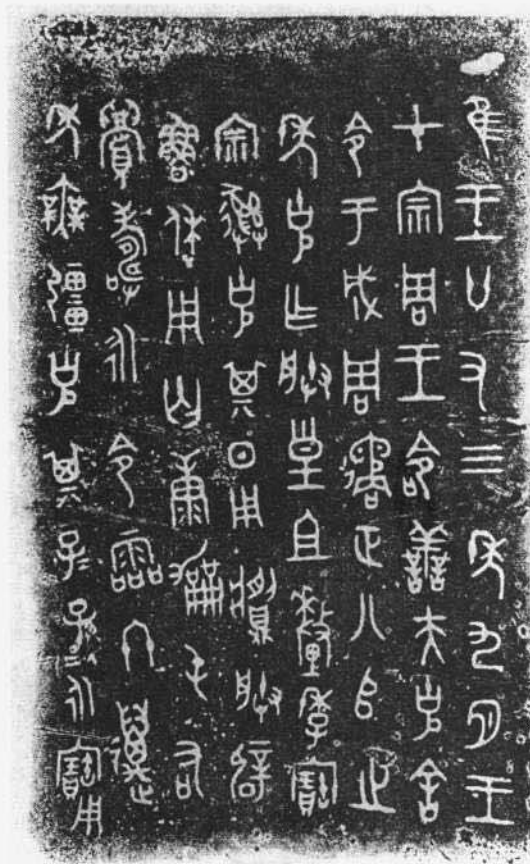 隹王廿又三年九月王
才宗周王命善夫克舍
令于成周遹正八𠂤之
年克乍朕皇且釐季寶
宗彝克其日用𩰫朕辟
魯休用匄康勵屯右
眉壽永令霝冬邁
年無彊克其子子孫孫永寶用